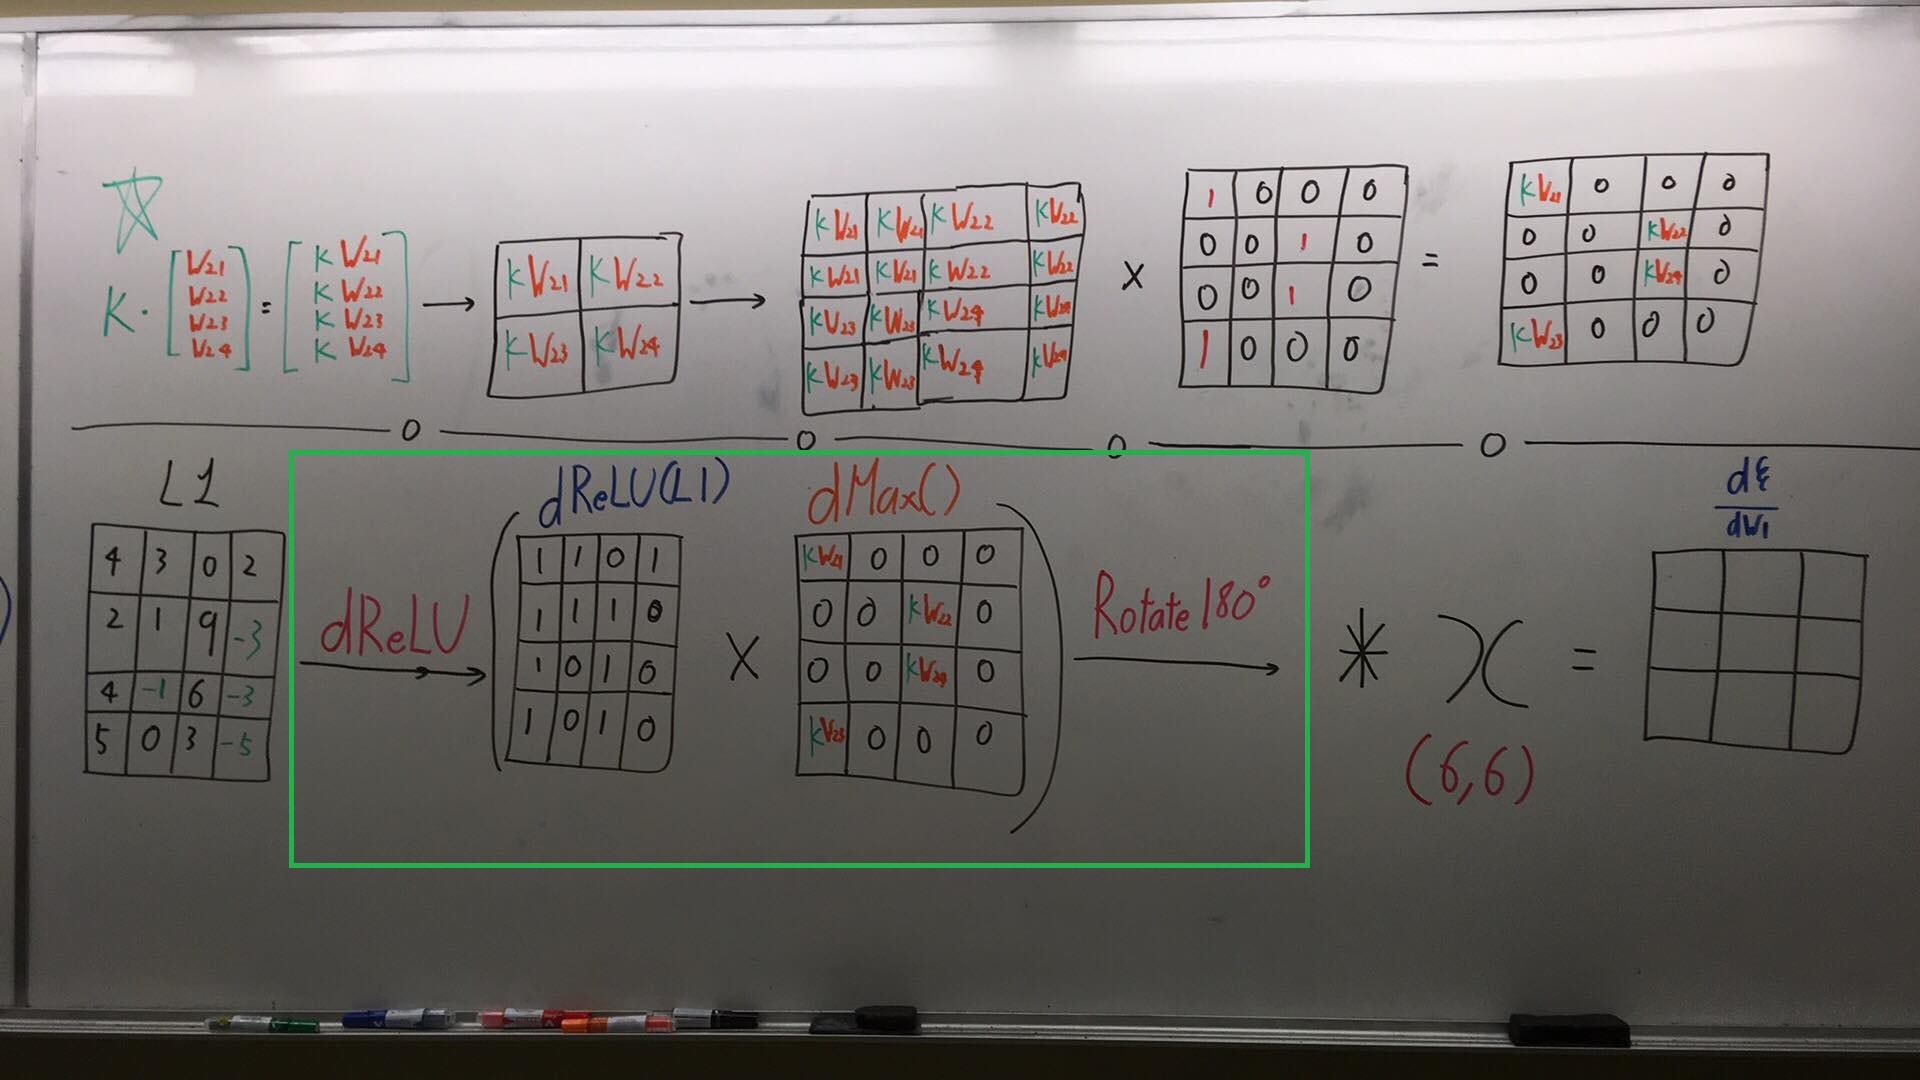 K · [W21 W22 W23 W24] = [K W21 K W22 K W23 K W24]
KW21 KW22
KW23 KW24
KW21 KW21 KW22 KW22
KW21 KW21 KW22 KW22
KW23 KW23 KW24 KW24
KW23 KW23 KW24 KW24
×
1 0 0 0
0 0 1 0
0 0 1 0
1 0 0 0
=
KW21 0 0 0
0 0 KW22 0
0 0 KW24 0
KW23 0 0 0
0 0 0 0
L1
4 3 0 2
2 1 9 -3
4 -1 6 -3
5 0 3 -5
dReLU
dReLU(L1)
1 1 0 1
1 1 1 0
1 0 1 0
1 0 1 0
X
dMax()
KW21 0 0 0
0 0 KW22 0
0 0 KW24 0
KW23 0 0 0
Rotate 180°
* X =
(6,6)
dξ
dW1